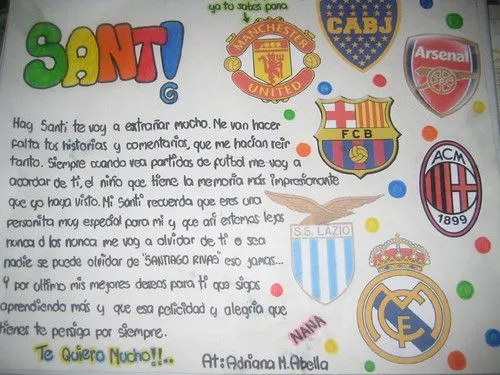 ya tu sabes pana
SANTI
MANCHESTER
UNITED
CABJ
Arsenal
FCB
ACM
1899
S.S. LAZIO
Hay Santi te voy a extrañar mucho. Me van hacer
falta tus risadas y comentarios, que me hacían reir
tanto. Siempre cuando vea partidos de futbol me voy a
acordar de ti, el niño que tiene la memoria más impresionante
que yo haya visto. Mi Santi recuerda que eres una
personita muy especial para mi y que asi estemos lejos
nunca d las nunca me voy a olvidar de ti o sea
nadie se puede olvidar de "SANTIAGO RIVAS" eso jamas...
Y por ultimo mis mejores deseos para ti que sigas
aprendiendo más y que esa felicidad y alegria que
tienes te persiga por siempre.
NANA
Te Quiero Mucho!!..
At: Adriana M. Abella